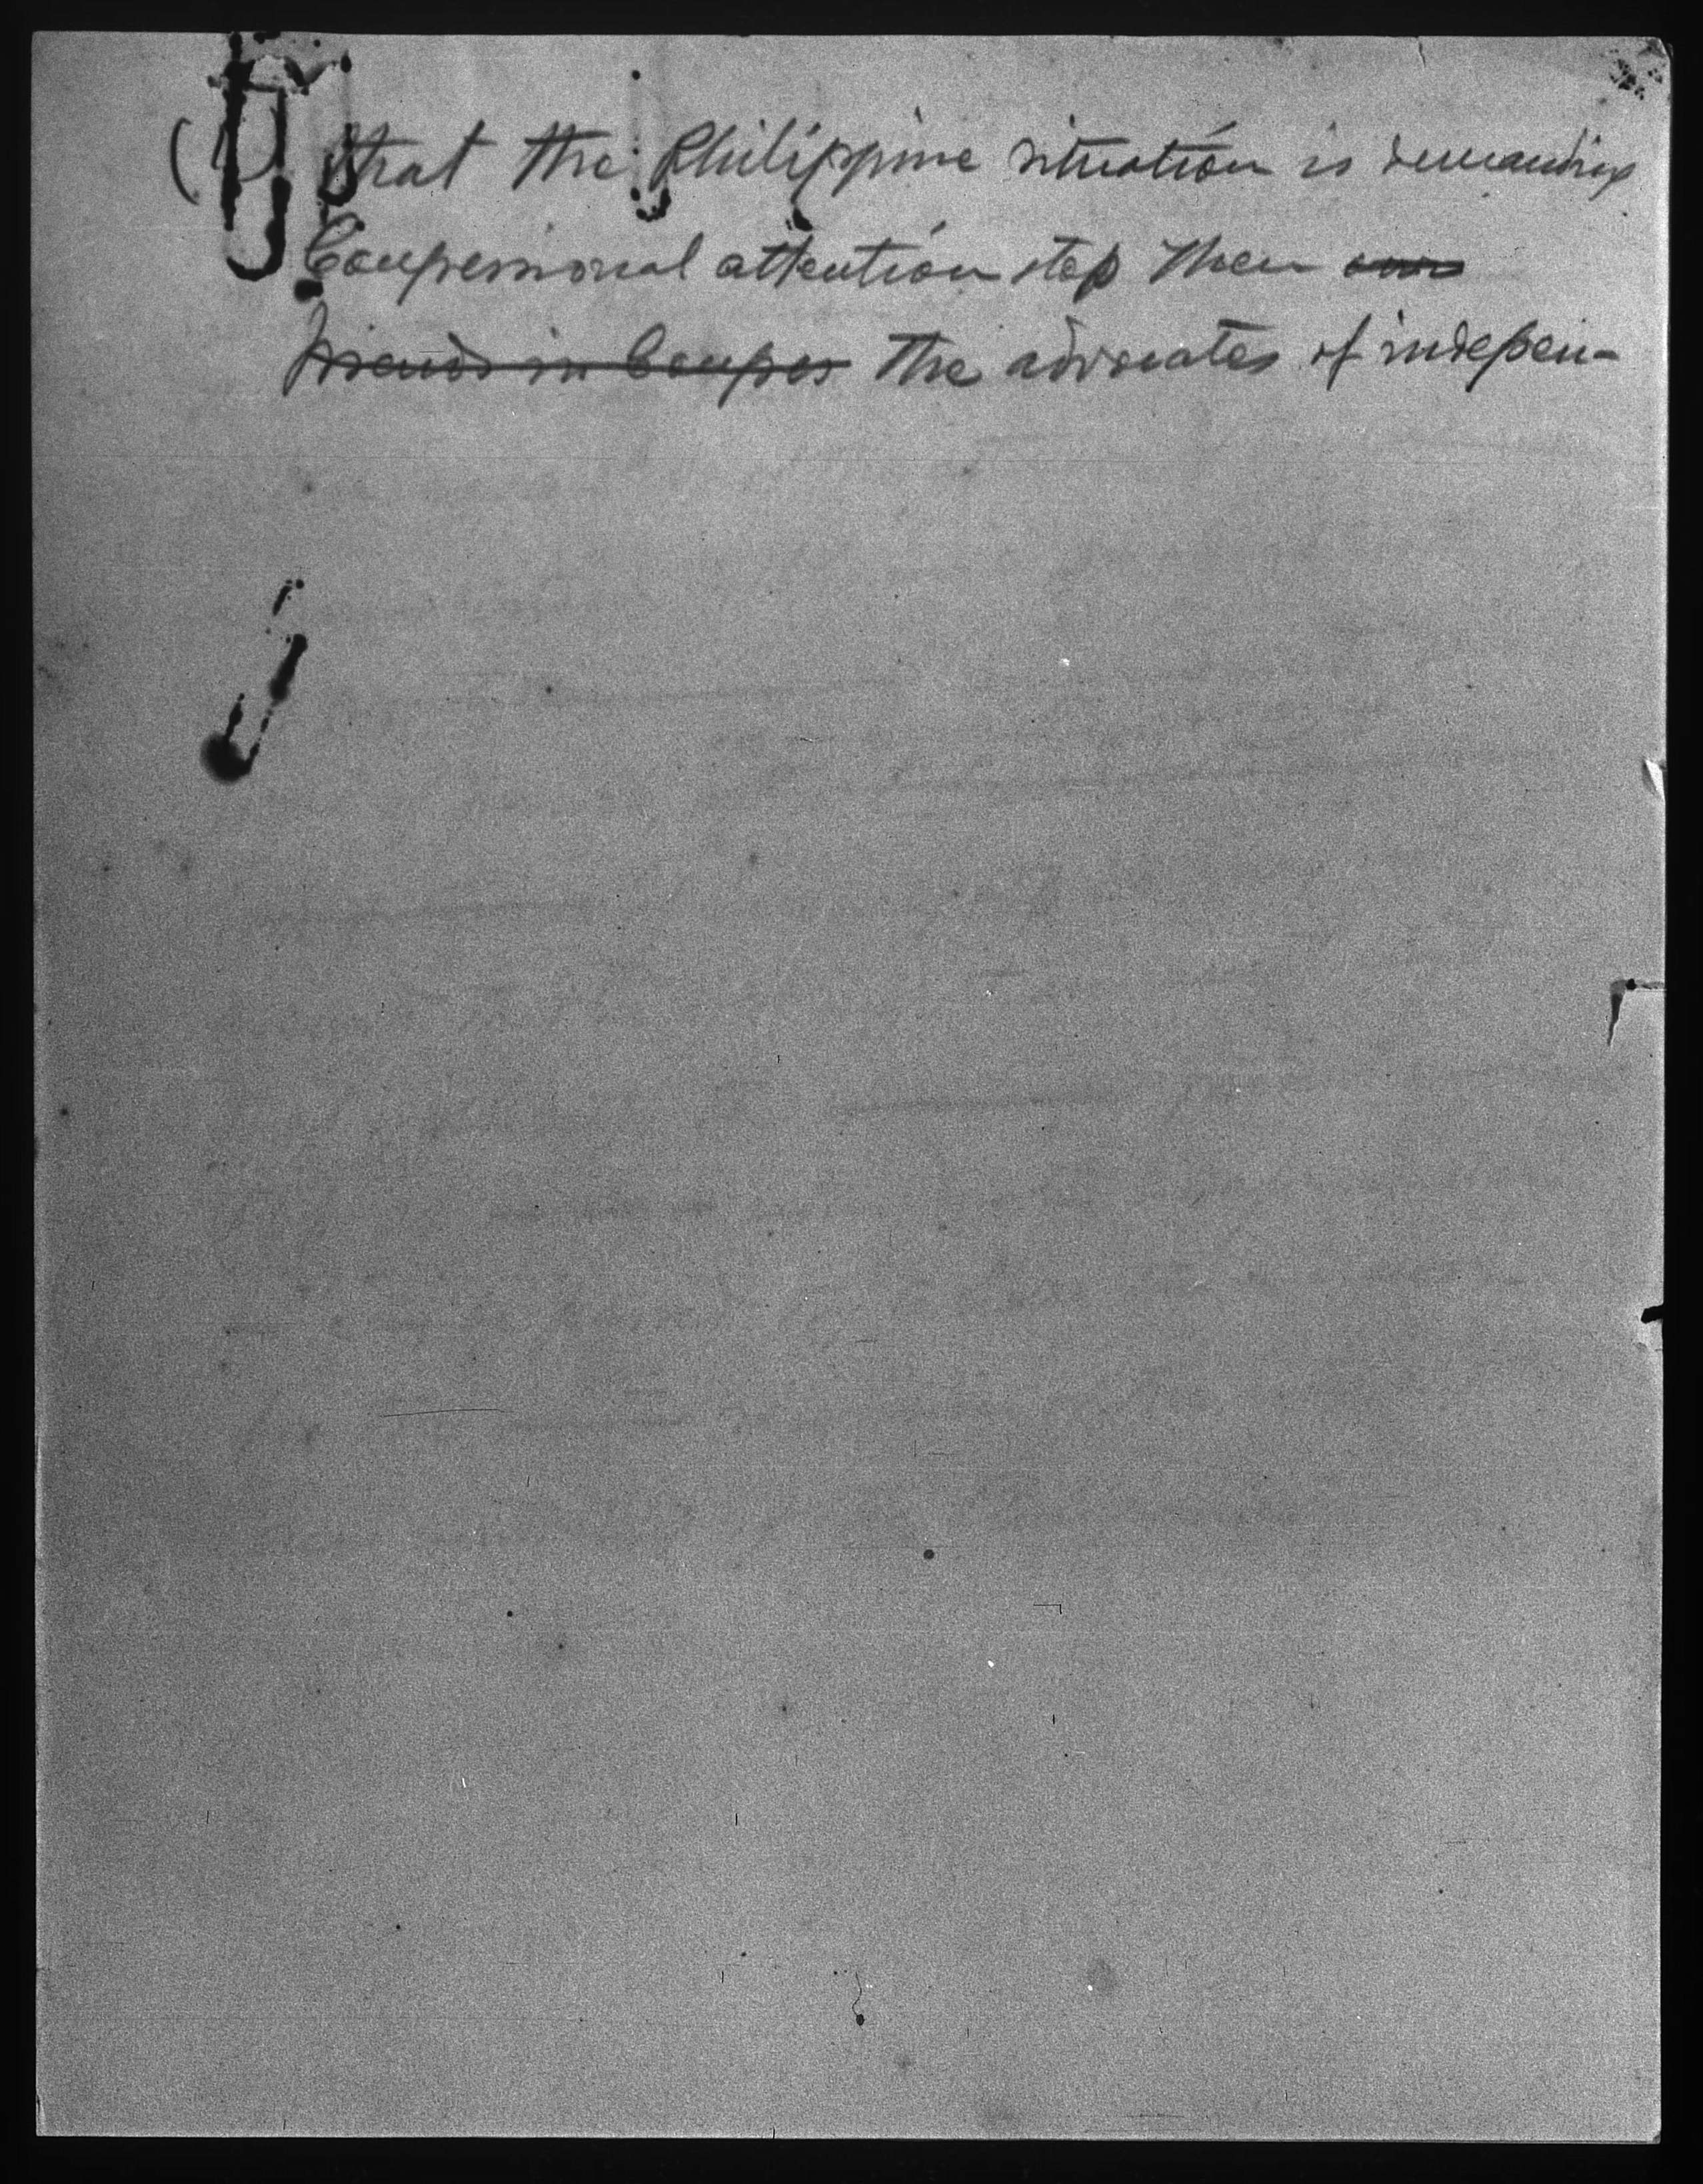 (1) that the Philippine situation is demanding
Congressional attention step Then our
friends in Congress The advocates of indepen-